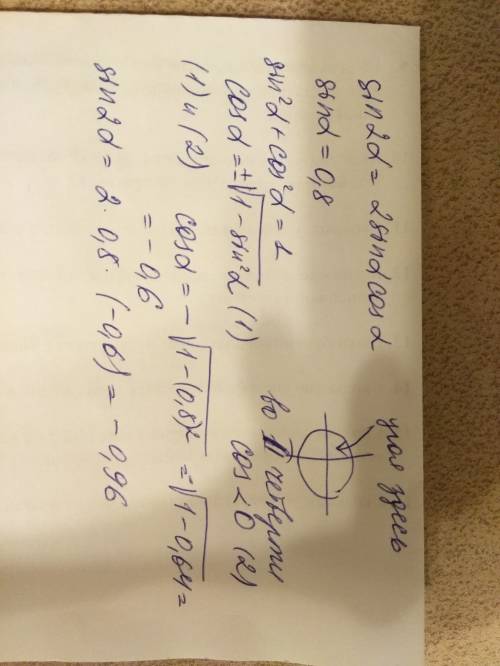 sin2α = 2sinα cosα
sinα = 0,8
угол здесь
sin²α + cos²α = 1
cosα = ±√1-sin²α (1)
во II четверти
cos<0 (2)
(1) и (2) cosα = -√1-(0,8)² = -√1-0,64 =
= -0,6
sin2α = 2·0,8·(-0,6) = -0,96